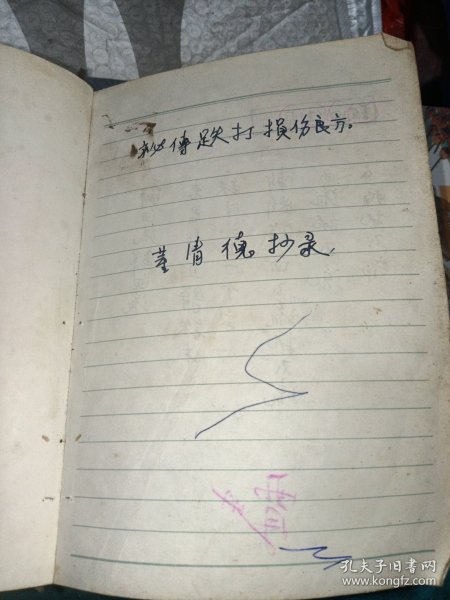 秘传跌打损伤良方。
董清德抄录
孔夫子旧书网
www.kongfz.com